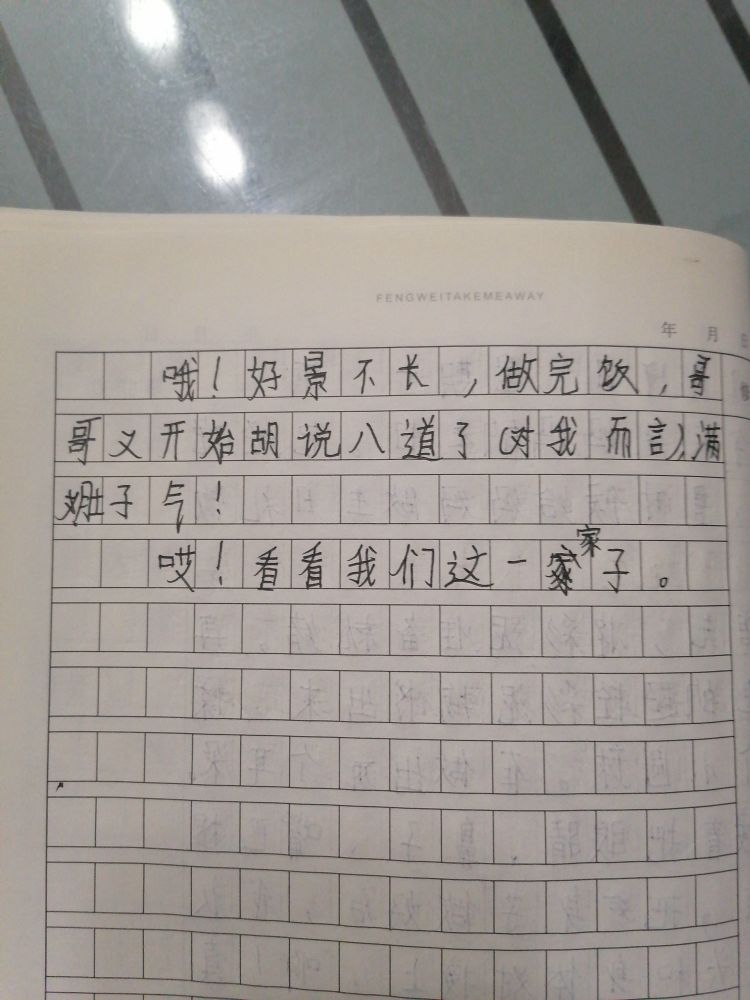 FENGWEITAKEMEAWAY
年 月 日
哦！好景不长，做完饭，哥
哥又开始胡说八道了（对我而言），满
肚子气！
哎！看看我们这一家子。